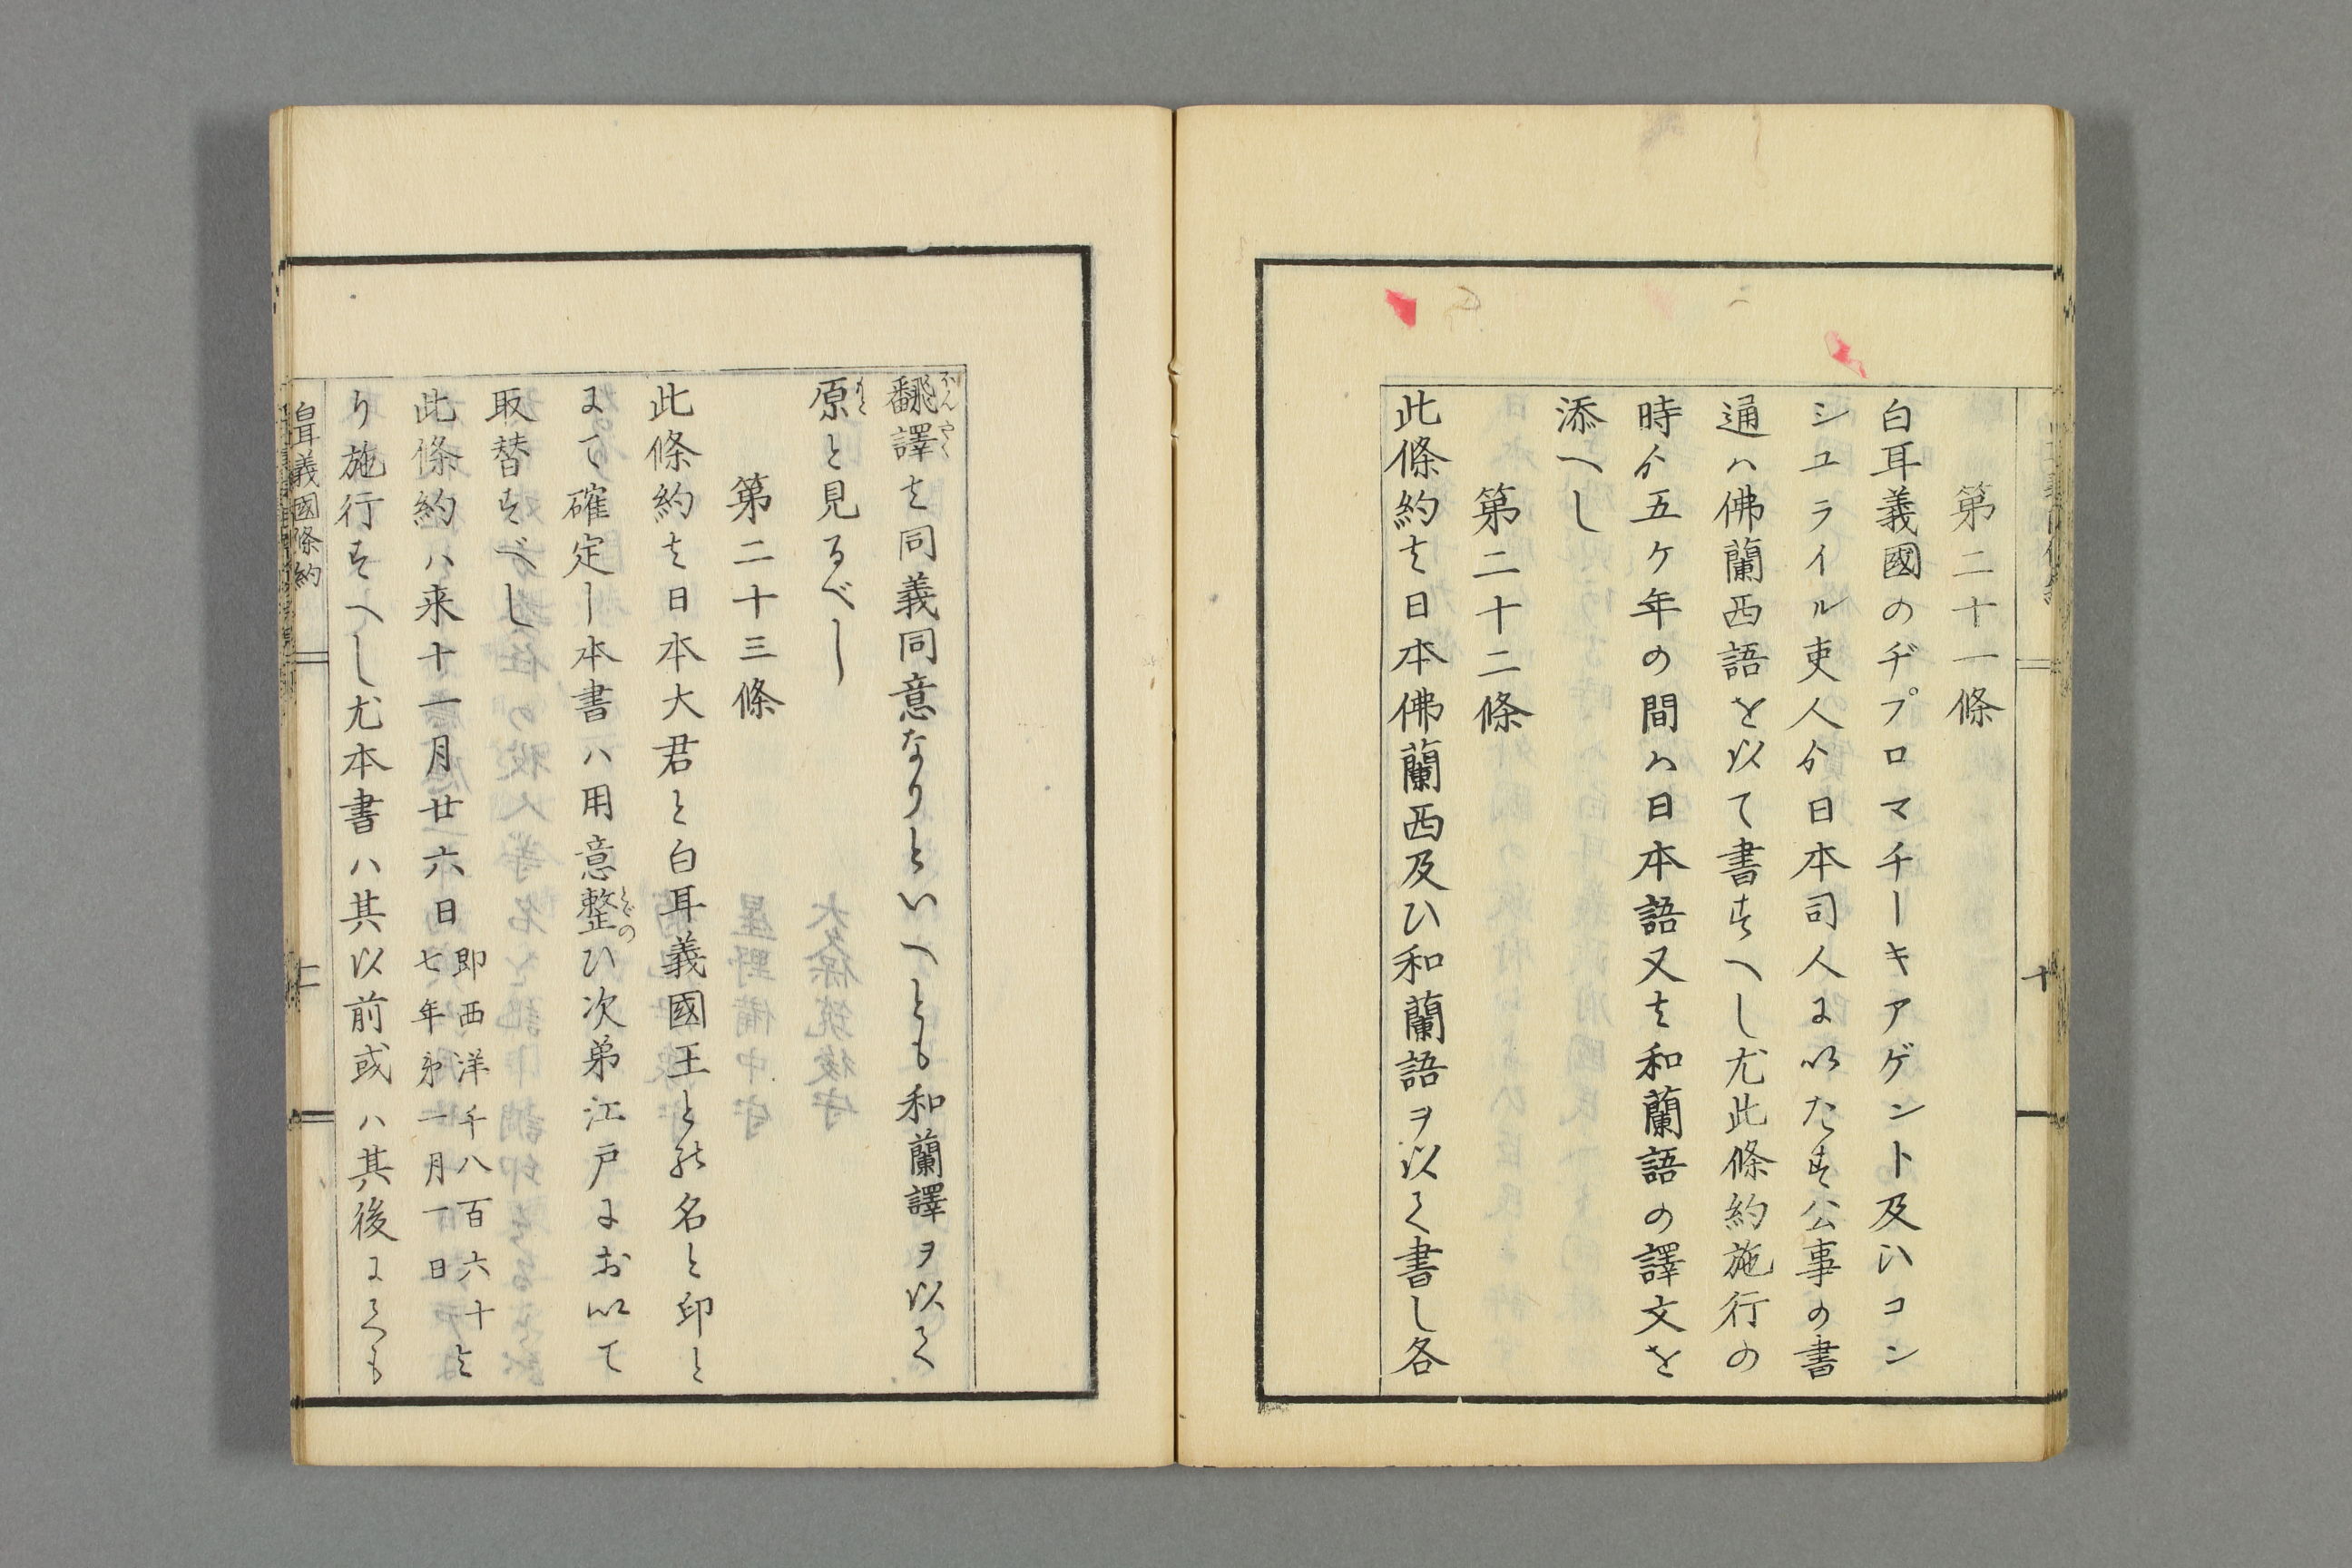 第二十一條
白耳義國のヂプロマチーキアゲント及ひコン
シュライル吏人ゟ日本司人にいたす公事の書
通ハ佛蘭西語を以て書すへし尤此條約施行の
時ゟ五ケ年の間ハ日本語又は和蘭語の譯文を
添へし
第二十二條
此條約は日本佛蘭西及ひ和蘭語ヲ以て書し各
十
飜譯は同義同意なりといへとも和蘭譯ヲ以て
ほんやく
原と見るべし
もと
第二十三條
此條約は日本大君と白耳義國王と能名と印と
にて確定し本書ハ用意整ひ次第江戸におゐて
とゝの
取替すべし
此條約ハ来十一月廿六日
即西洋千八百六十
七年第一月一日
り施行すへし尤本書ハ其以前或ハ其後にても
白耳義國條約
十一